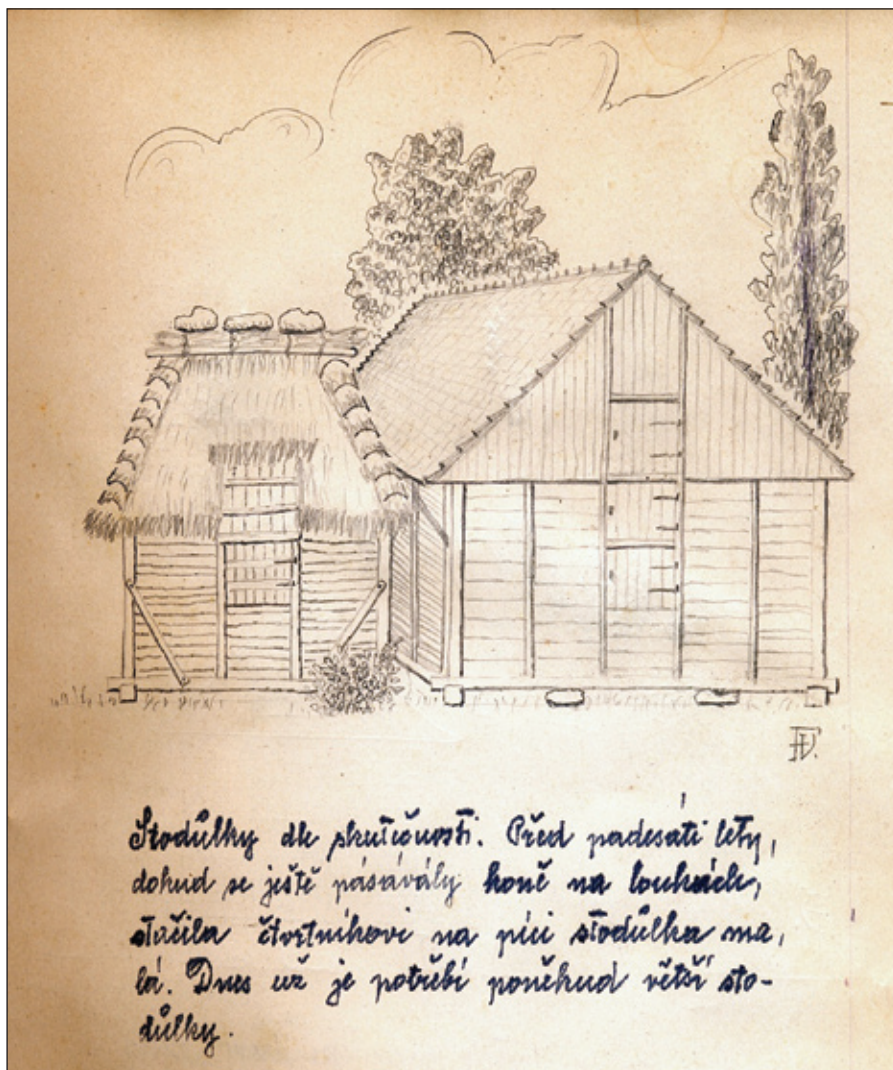 Stodůlky dle skutečnosti. Před padesáti lety,
dokud se ještě pásávály koně na loukách,
stačila čtvrtníkovi na píci stodůlka ma,
lá. Dnes už je potřebí poněkud větší sto-
důlky.